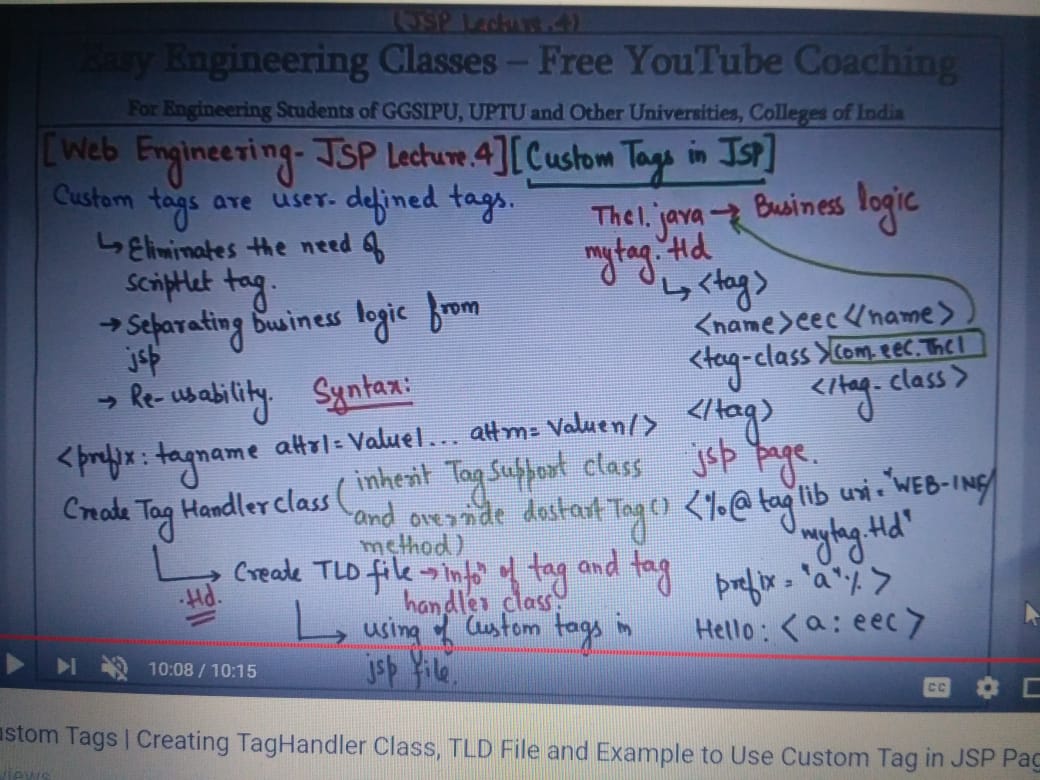 (JSP Lecture.4)
Easy Engineering Classes – Free YouTube Coaching
For Engineering Students of GGSIPU, UPTU and Other Universities, Colleges of India
[Web Engineering- JSP Lecture.4][Custom Tags in JSP]
Custom tags are user-defined tags.
↳ Eliminates the need of
scriptlet tag.
→ Separating business logic from
jsp
→ Re-usability.
Syntax:
<prefix: tagname attr1= Value1... attrn= Valuen/>
Create Tag Handler class (inherit TagSupport class
and override dostart Tag()
method)
↳ Create TLD file → infoⁿ of tag and tag
handler class.
.tld.
↳ using of Custom tags in
jsp file.
Thc1.java → Business logic
mytag.tld
↳ <tag>
<name>eec</name>
<tag-class>com.eec.Thc1
</tag-class>
</tag>
jsp page.
<%@ taglib uri="WEB-INF/
mytag.tld"
prefix = "a"%>
Hello: <a:eec>
10:08 / 10:15
CC
ustom Tags | Creating TagHandler Class, TLD File and Example to Use Custom Tag in JSP Pag
views